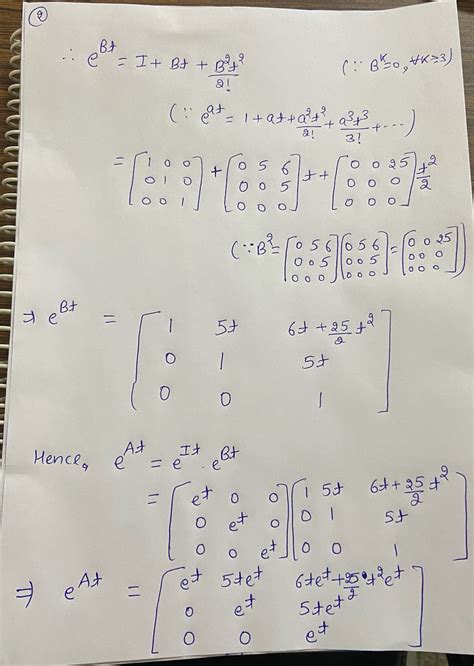 2
∴ e^{Bt} = I + Bt + B²t²/2! (∵ B^K=0, ∀K≥3)
(∵ e^{at} = 1 + at + a²t²/2! + a³t³/3! + ···)
= [1 0 0; 0 1 0; 0 0 1] + [0 5 6; 0 0 5; 0 0 0] t + [0 0 25; 0 0 0; 0 0 0] t²/2
(∵ B² = [0 5 6; 0 0 5; 0 0 0] [0 5 6; 0 0 5; 0 0 0] = [0 0 25; 0 0 0; 0 0 0])
⇒ e^{Bt} = [1 5t 6t + 25/2 t²; 0 1 5t; 0 0 1]
Hence, e^{At} = e^{It} · e^{Bt}
= [e^t 0 0; 0 e^t 0; 0 0 e^t] [1 5t 6t + 25/2 t²; 0 1 5t; 0 0 1]
⇒ e^{At} = [e^t 5te^t 6te^t + 25/2 t²e^t; 0 e^t 5te^t; 0 0 e^t]